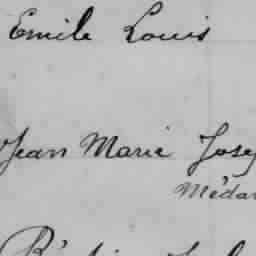 Emile Louis
Jean Marie Jose
Médar